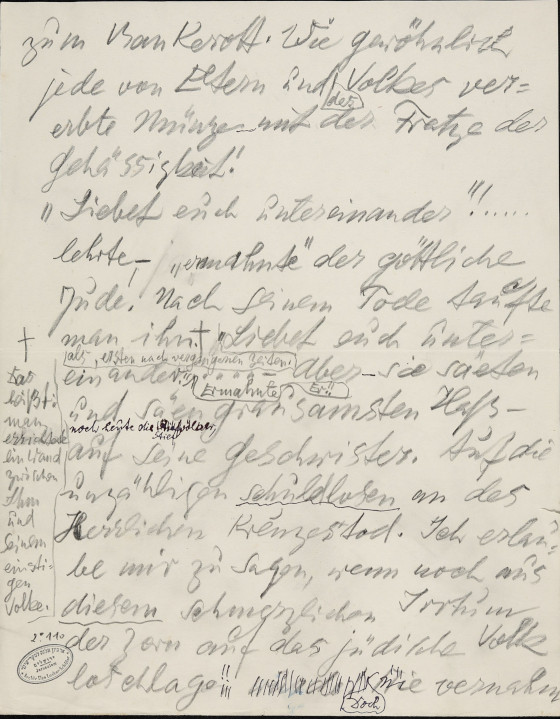 zum Bankerott. Wie gewöhnlich
jede von Eltern und Volkes ver=
der
erbte Münze mit der Fratze der
Gehässigkeit!
„Liebet euch untereinander"!!......
lehrte, „ermahnte" der göttliche
Jude. Nach seinem Tode taufte
man ihn. † „Liebet euch unter=
als, ersten nach vergangenen Zeiten.
einander." Aber sie säeten
Ermahnte Er!
und säen grausamsten Haß
noch heute die
Stief
auf seine Geschwister. Auf die
unzähligen schuldlosen an des
Herrlichen Kreuzestod. Ich erlau=
be mir zu sagen, wenn noch aus
diesem schmerzlichen Irrtum
der Zorn auf das jüdische Volk
losschlage!! wie vernahm
Doch
†
Das
heißt:
man
errichtete
ein Wand
zwischen
Ihm
und
Seinem
einsti-
gen
Volke.
2:110